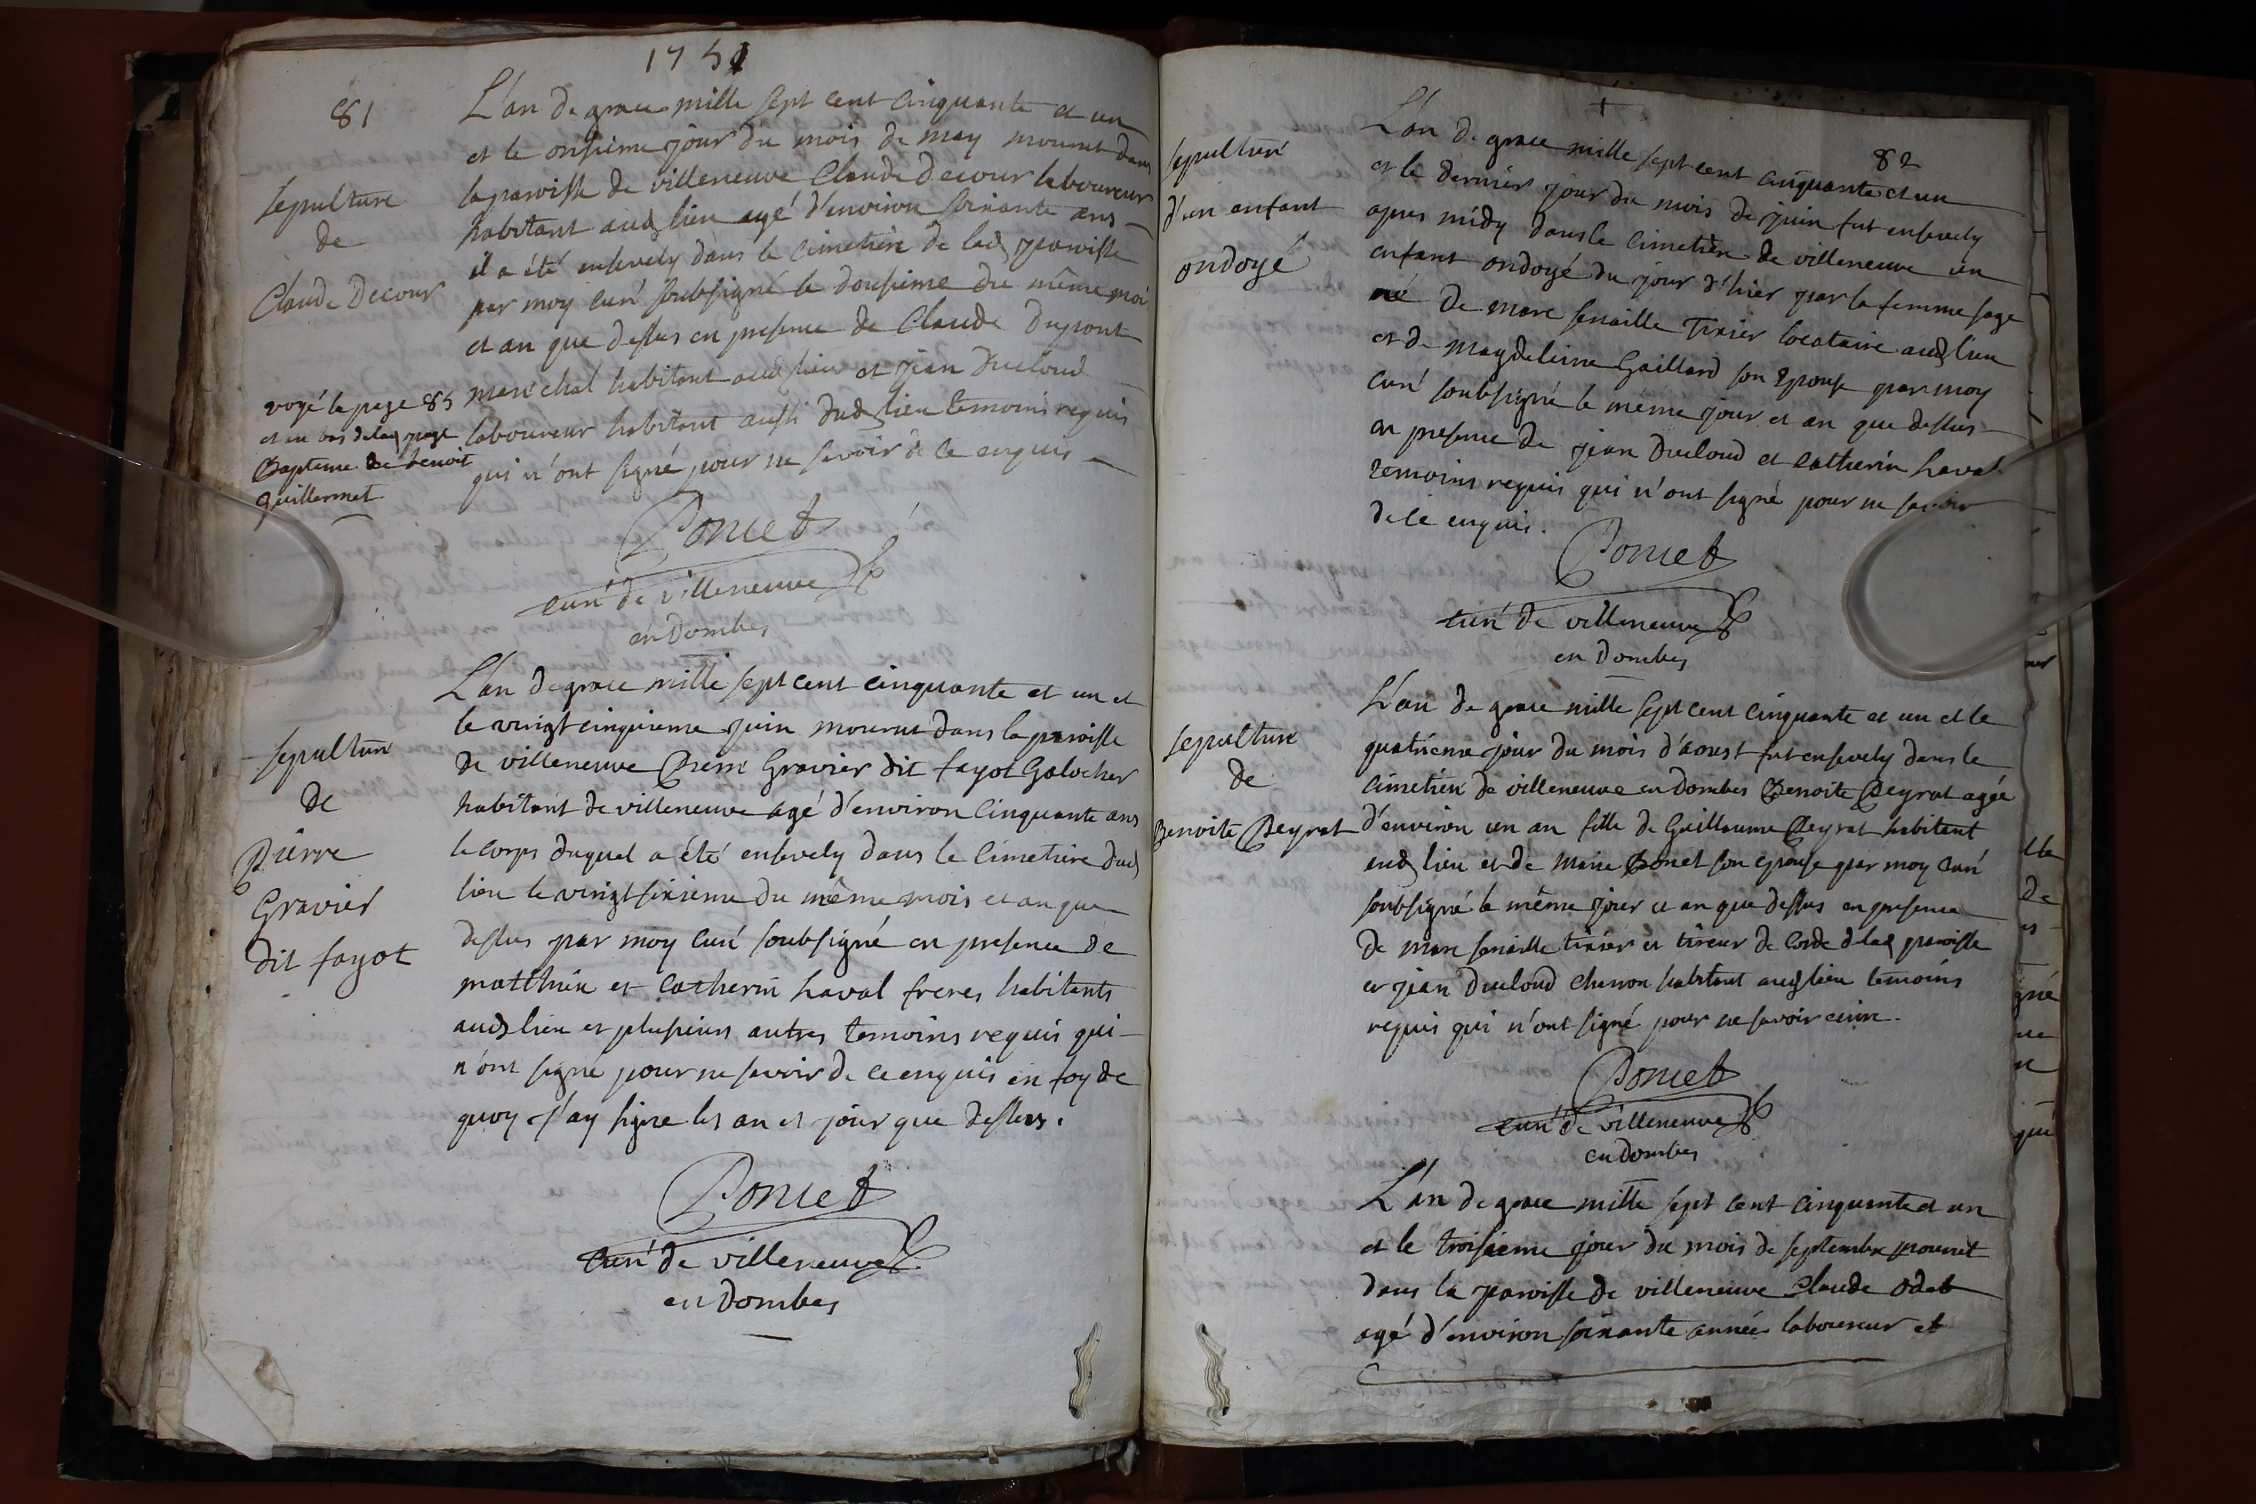 1751
81
L'an de grace mille sept cent cinquante et un
et le onsieme jour du mois de may mourut dans
la paroisse de villeneuve Claude Decour laboureur
habitant aud lieu agé d'environ soixante ans
il a été ensevely dans le cimetiere de lad paroisse
par moy curé soubsigné le dousieme du même moi
et an que dessus en presence de Claude Dupont
marechal habitant aud lieu et jean Ducloud
laboureur habitant aussi dud lieu temoins requis
qui n'ont signé pour ne savoir de ce enquis
sepulture
de
Claude Decour
voyé la page 85
et au bas de lad page
Bapteme de benoit
guillermet
Poncet
curé de villeneuve
en Dombes
L'an de grace mille sept cent cinquante et un et
le vingt cinquieme juin mourut dans la paroisse
de villeneuve Pierre Gravier dit fayot Galocher
habitant de villeneuve agé d'environ Cinquante ans
le corps duquel a été ensevely dans le cimetiere dud
lieu le vingt sixieme du même mois et an que
dessus par moy curé soubsigné en presence de
matthieu et Catherin Laval freres habitants
aud lieu et plusieurs autres temoins requis qui
n'ont signé pour ne savoir de ce enquis en foy de
quoy j'ay signe les an et jour que dessus.
sepulture
de
Pierre
Gravier
dit fayot
Poncet
curé de villeneuve
en Dombes
82
L'an de grace mille sept cent cinquante et un
et le dernier jour du mois de juin fut ensevely
apres midy dans le cimetiere de villeneuve un
enfant ondoyé du jour d'hier par la femme sage
né de marc senaille Tixier locataire aud lieu
et de magdeleine Gaillard son Epouse par moy
curé soubsigné le même jour et an que dessus
en presence de jean Ducloud et catherin Laval
temoins requis qui n'ont signé pour ne savoir
de ce enquis.
sepulture
d'un enfant
ondoyé
Poncet
curé de villeneuve
en Dombes
L'an de grace mille sept cent cinquante et un et le
quatrieme jour du mois d'aoust fut ensevely dans le
cimetiere de villeneuve en Dombes Benoite Peyrat agée
d'environ un an fille de Guillaume Peyrat habitant
aud lieu et de marie Ponet son epouse par moy curé
soubsigné le même jour et an que dessus en presence
de marc senaille tixier et tireur de corde de lad paroisse
et jean Ducloud charron habitant aud lieu temoins
requis qui n'ont signé pour ne savoir
sepulture
de
Benoite Peyrat
Poncet
curé de villeneuve
en Dombes
L'an de grace mille sept cent cinquante et un
et le troisieme jour du mois de septembre mourut
dans la paroisse de villeneuve Claude Odet
agé d'environ soixante années laboureur et